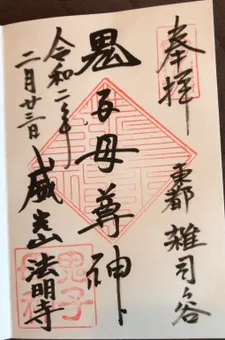 奉拝
東都 雑司ヶ谷
鬼子母尊神
令和二年
二月廿三日
威光山 法明寺